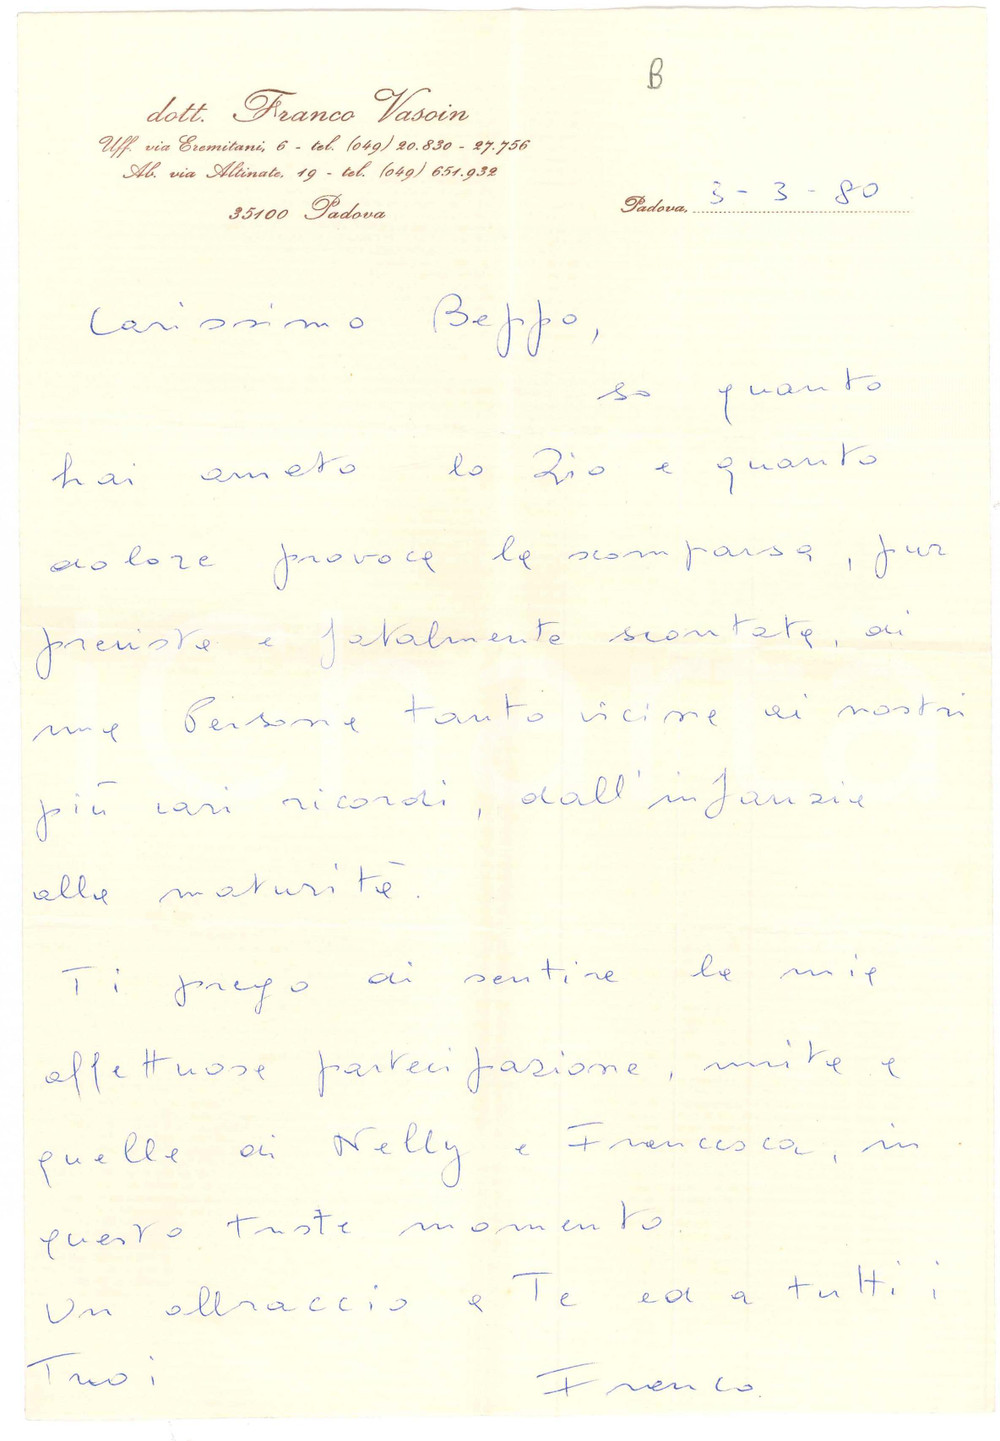 B
dott. Franco Vasoin
Uff. via Eremitani, 6 - tel. (049) 20.830 - 27.756
Ab. via Altinate, 19 - tel. (049) 651.932
35100 Padova
Padova, 3 - 3 - 80
Carissimo Beppo,
so quanto
hai amato lo Zio e quanto
dolore provoca la scomparsa, pur
prevista e fatalmente scontata, di
una Persona tanto vicina ai nostri
più cari ricordi, dall'infanzia
alla maturità.
Ti prego di sentire la mia
affettuosa partecipazione, unita a
quella di Nelly e Francesca, in
questo triste momento.
Un abbraccio a Te ed a tutti i
Tuoi
Franco.